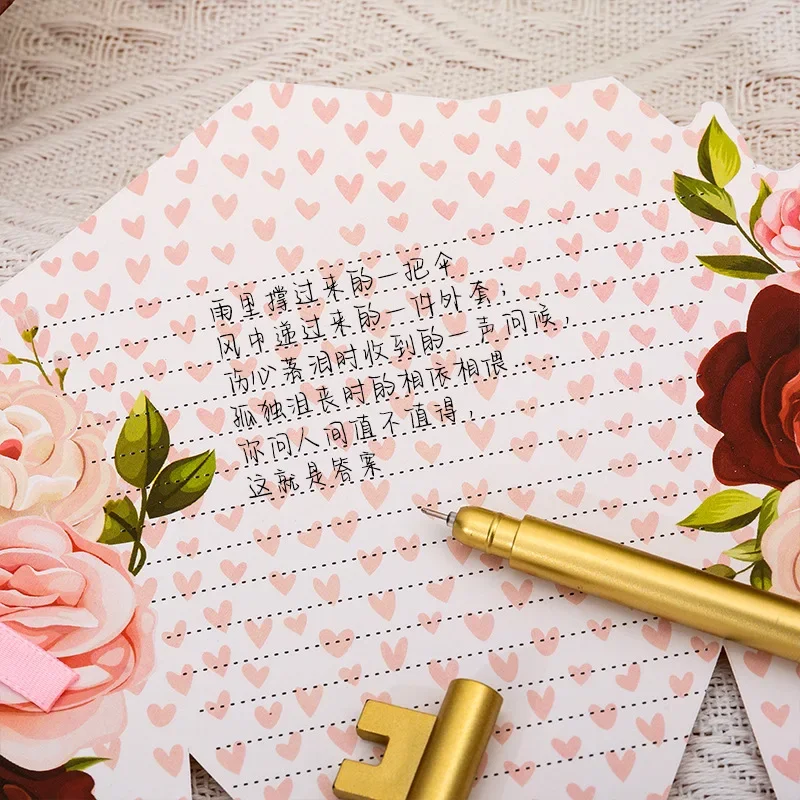 雨里撑过来的一把伞
风中递过来的一件外套，
伤心落泪时收到的一声问候，
孤独沮丧时的相依相偎
你问人间值不值得，
这就是答案